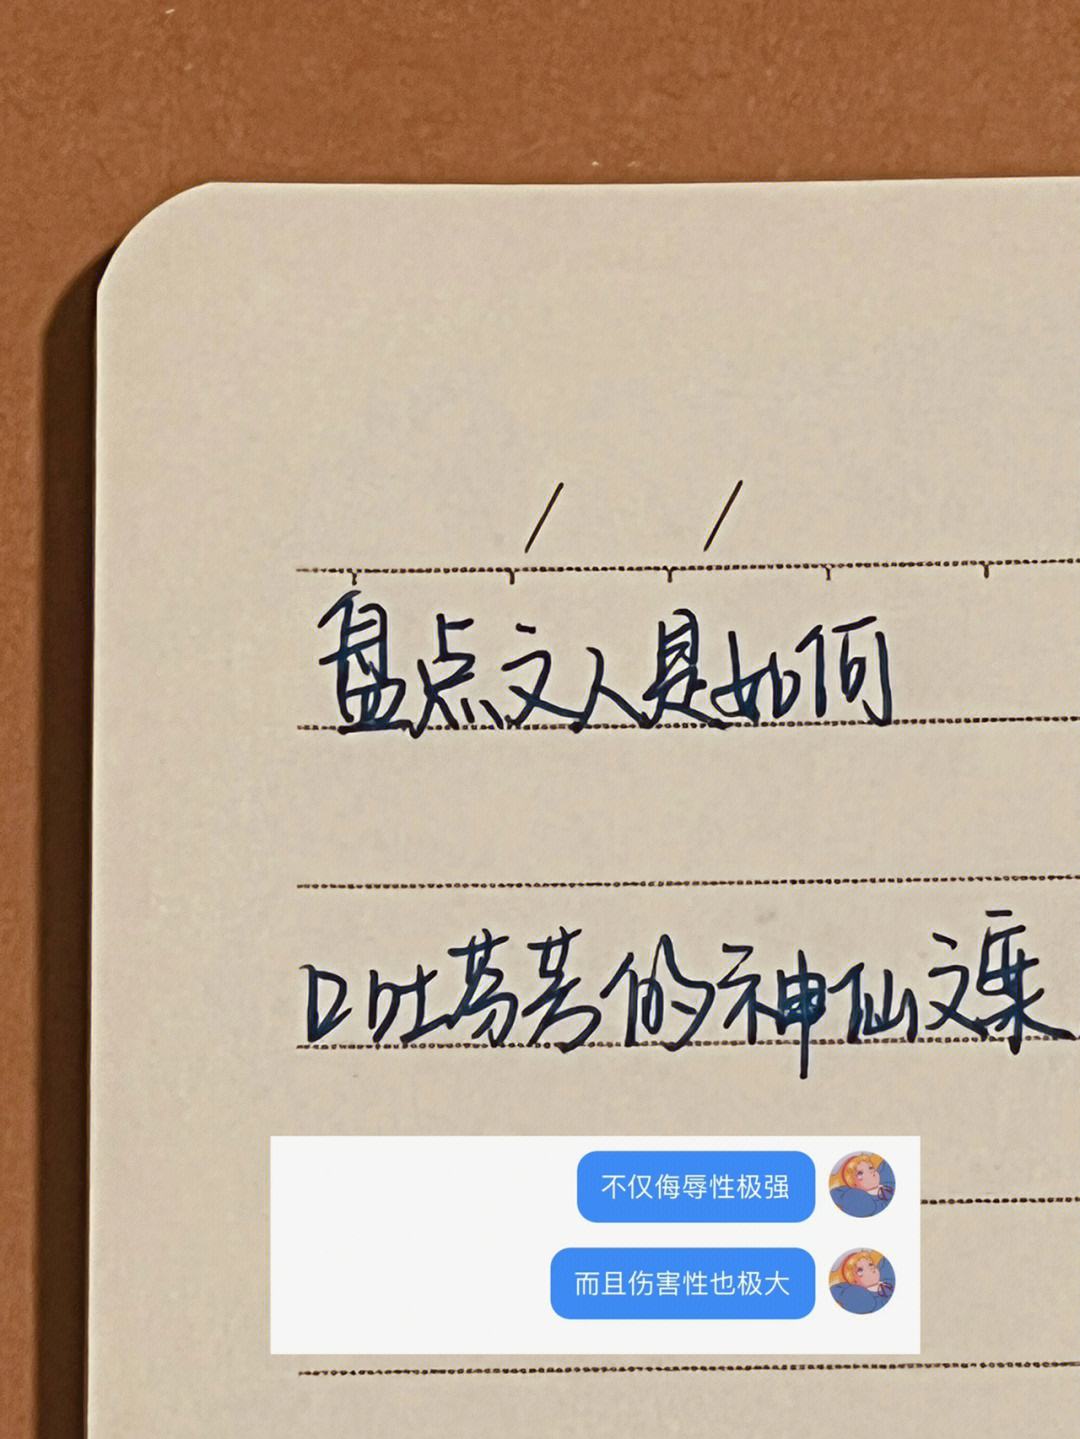 盘点文人是如何
口吐芬芳的神仙文案
不仅侮辱性极强
而且伤害性也极大